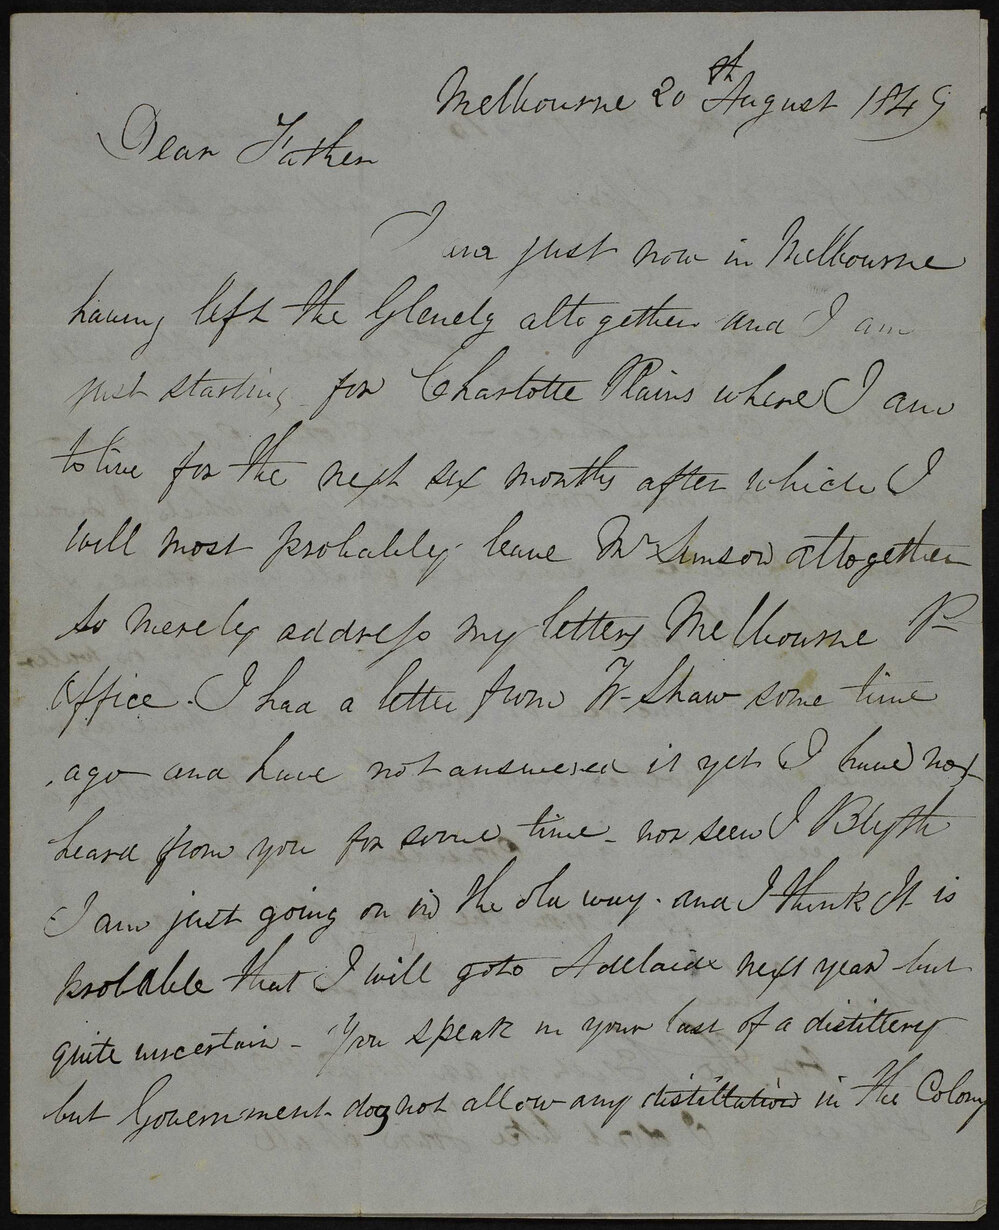 Melbourne 20th August 1849
Dear Father
I am just now in Melbourne
having left the Glenelg altogether and I am
just starting for Charlotte Plains where I am
to live for the next six months after which I
will most probably leave Mr Simson altogether
so merely address my letters Melbourne P
Office. I had a letter from W- Shaw some time
ago and have not answered it yet I have not
heard from you for some time - nor seen J Blyth
I am just going on in the old way. and I think It is
probable that I will go to Adelaide next year but
quite uncertain - You speak in your last of a distillery
but Government does not allow any distillation in the Colony